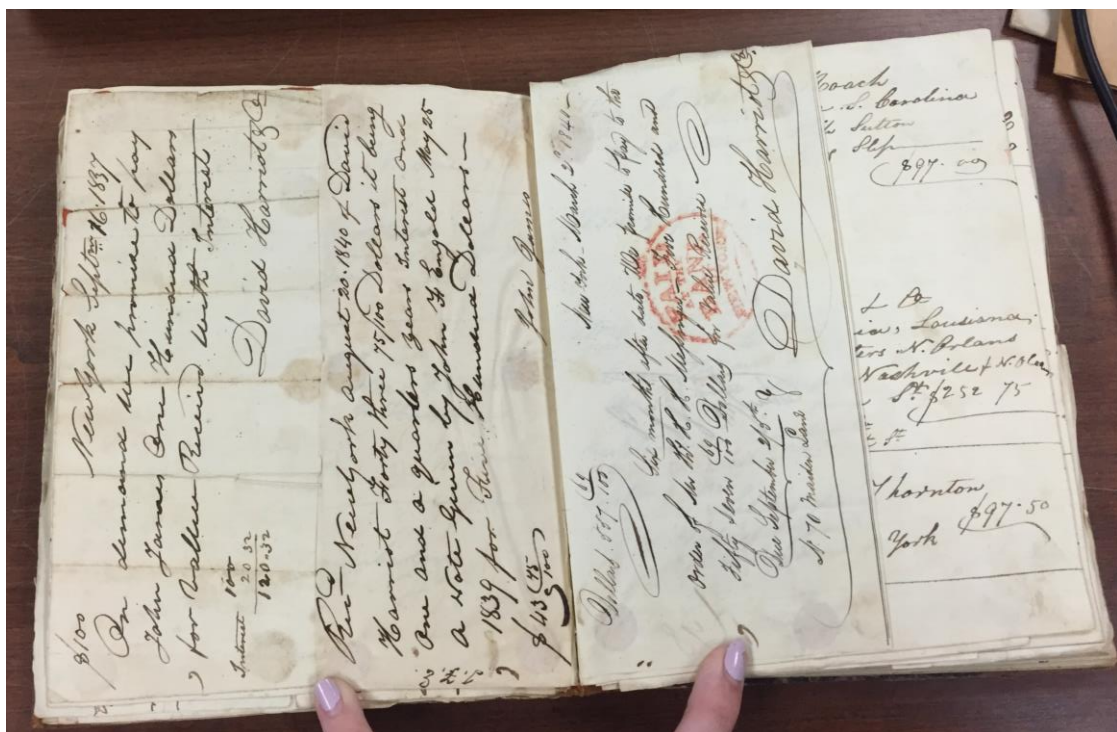 $100 New York Septmr 16. 1837
On demand we promise to pay
John James One Hundred Dollars
for Value Received with Interest
Interest 100
20 32
120.32
David Harriot & Co
Recd New York August 20. 1840 of David
Harriot Forty three 75/100 Dollars it being
One and a quarters years Interest on a
a note Given by John H Engale May 25
1839 for Five Hundred Dollars
$43 75/100 John James
Dollars 557. 69/100 New York March 2d 1840
Six months after date We promise to pay to the
order of
Fifty Seven 69/100 Dollars for Value Received
Due September 2/5th
No 70 Maiden Lane
David Harriot & Co
PAID
BANK
Coach
S. Carolina
Sutton
Slip
$97.00
& Co
Lousiana,
N. Orlans
Nashville & N. Orlea
St $252 75
St
Thornton
$97.50
York